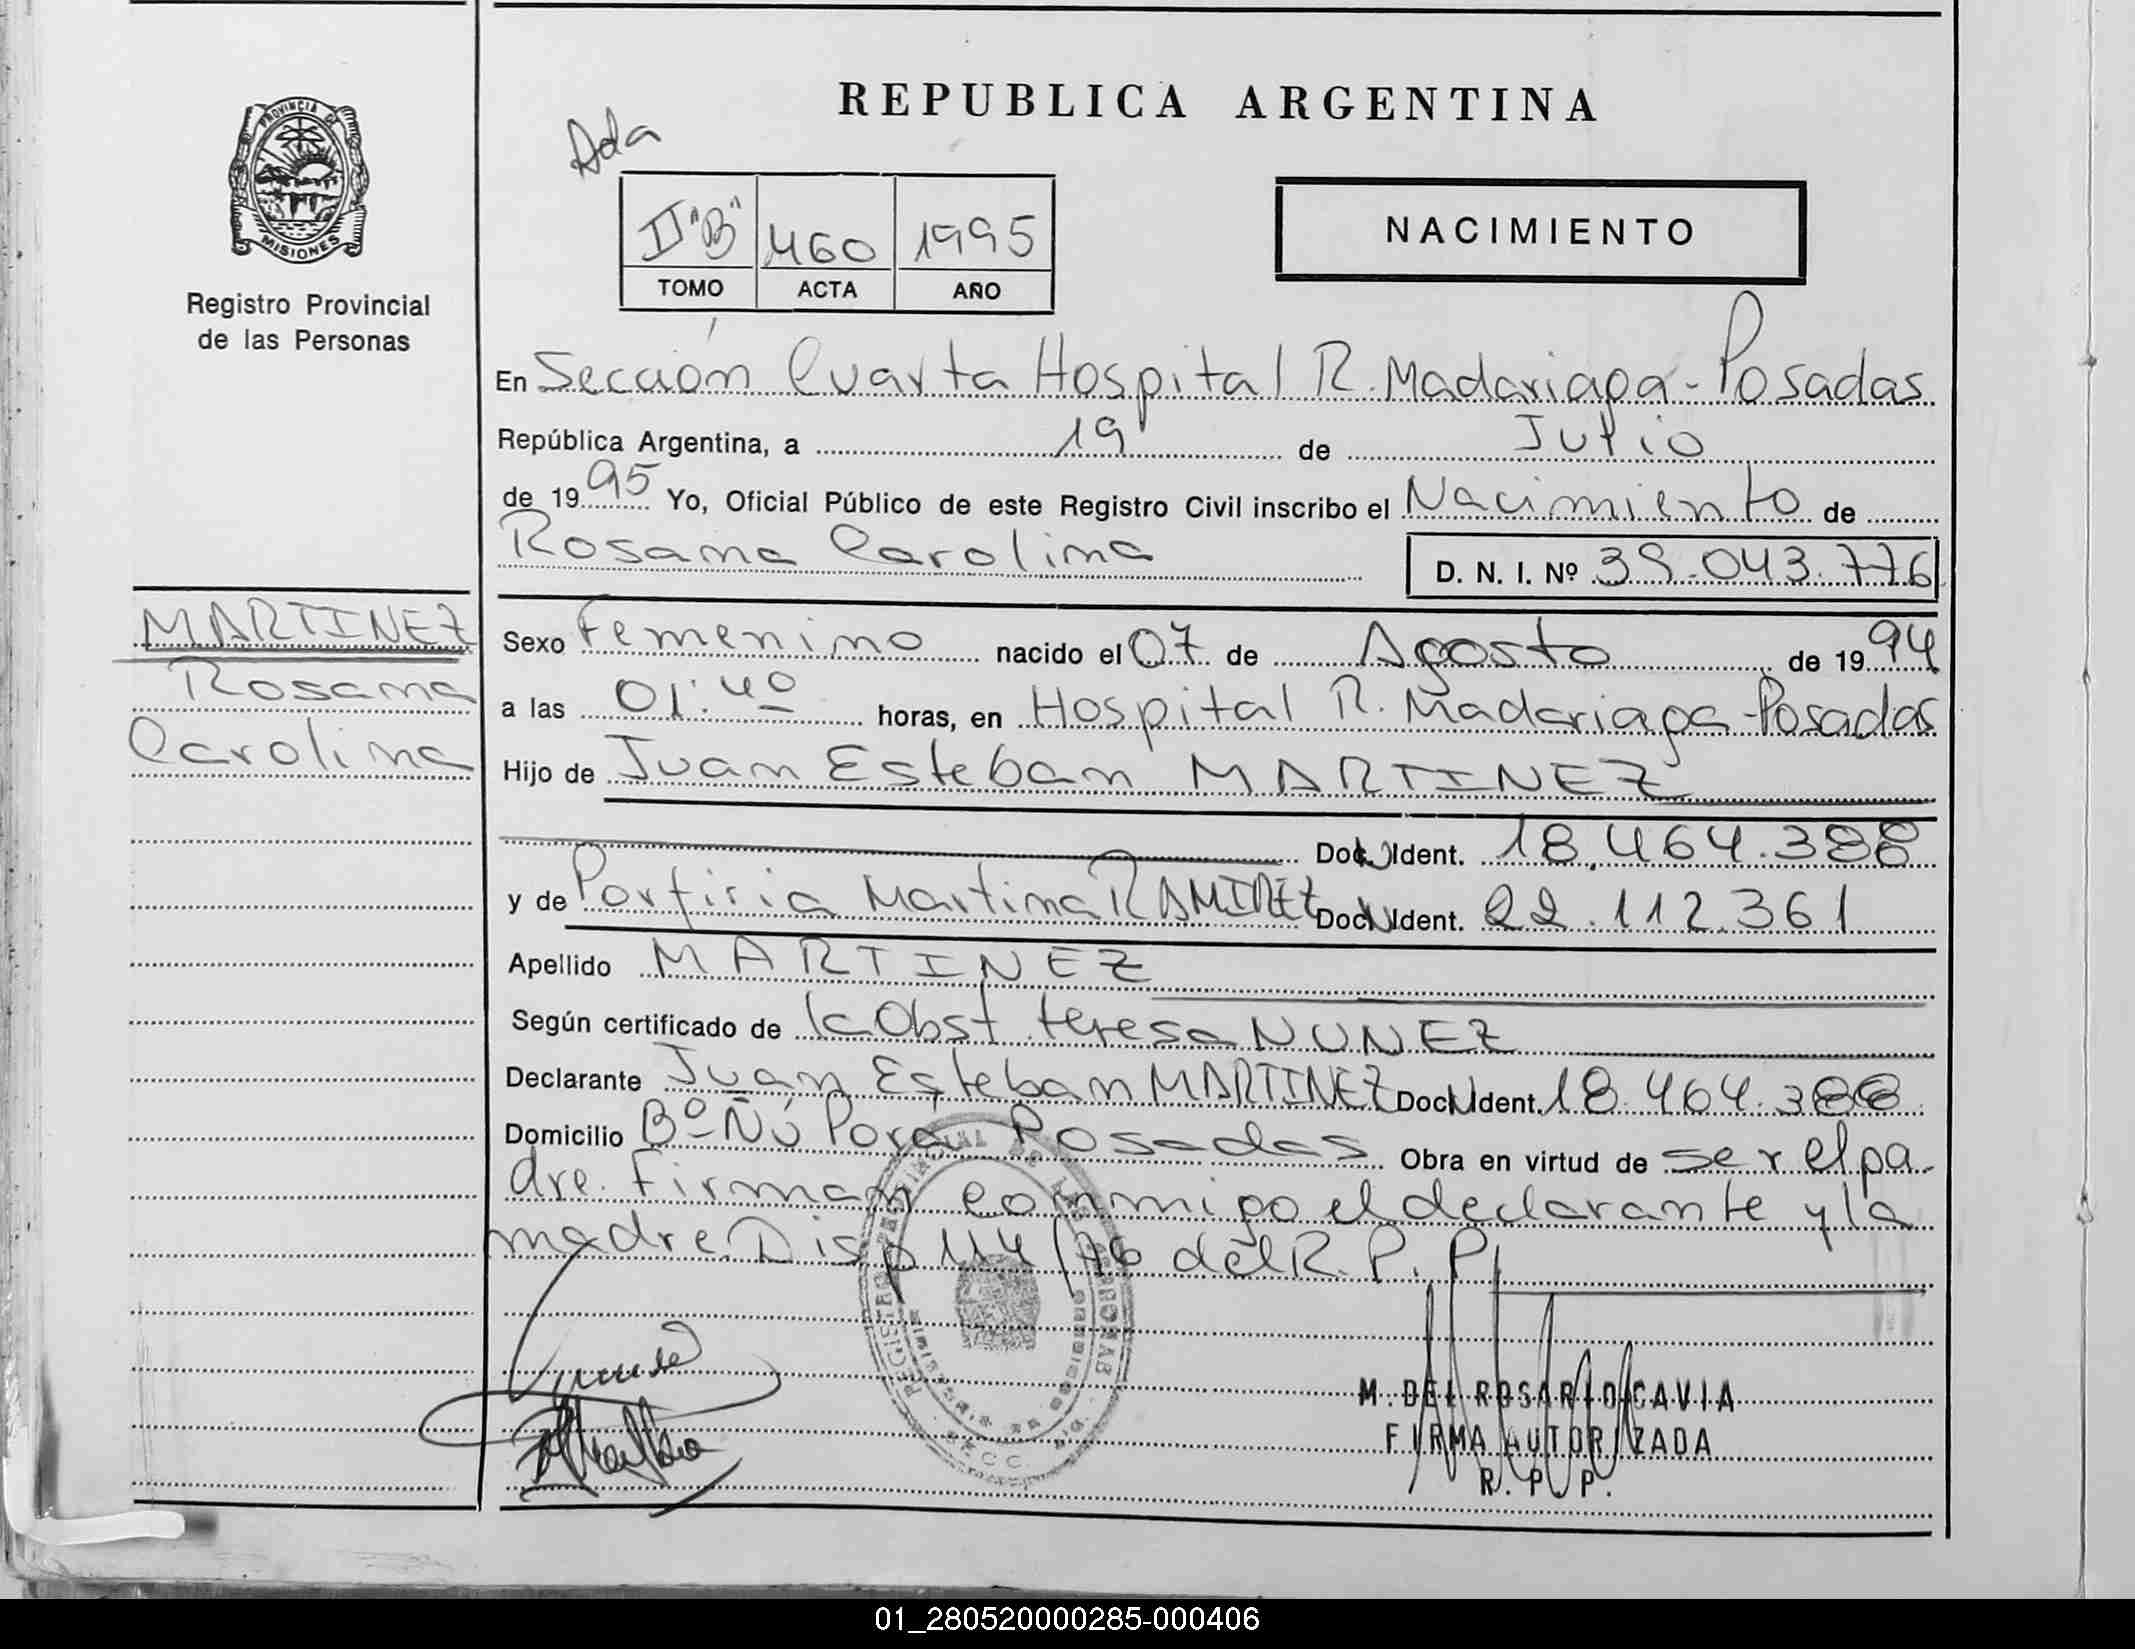 PROVINCIA DE
MISIONES
Registro Provincial
de las Personas
MARTINEZ
Rosana
Carolina
REPUBLICA ARGENTINA
Ada
II "B" 460 1995
TOMO ACTA AÑO
NACIMIENTO
En Sección Cuarta Hospital R. Madariaga - Posadas
República Argentina, a 19 de Julio
de 1995 Yo, Oficial Público de este Registro Civil inscribo el Nacimiento de
Rosana Carolina D. N. I. Nº 39.043.776
Sexo Femenino nacido el 07 de Agosto de 1994
a las 01:40 horas, en Hospital R. Madariaga - Posadas
Hijo de Juan Esteban MARTINEZ
Doc. Ident. 18.464.388
y de Porfiria Martina RAMIREZ Doc. Ident. 22.112.361
Apellido MARTINEZ
Según certificado de Obst. Teresa NUNEZ
Declarante Juan Esteban MARTINEZ Doc. Ident. 18.464.388
Domicilio Bº Ñú Porá Posadas Obra en virtud de ser el pa-
dre. Firman conmigo el declarante y la
madre. Disp 114/76 del R. P. P.
M. DEL ROSARIO CAVIA
FIRMA AUTORIZADA
R. P. P.
01_280520000285-000406